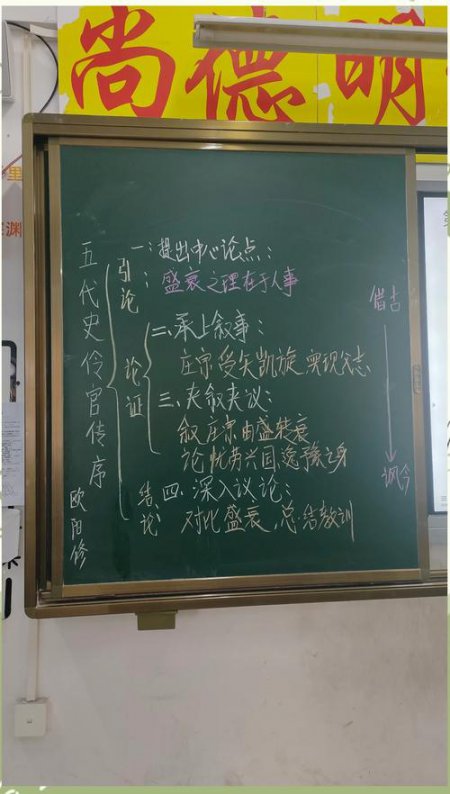 尚德明
五代史伶官传序
欧阳修
引论：
一：提出中心论点：
盛衰之理在于人事
论证
二、承上叙事：
庄宗受矢凯旋实现父志
三、夹叙夹议：
叙庄宗由盛转衰
论忧劳兴国，逸豫亡身
结论
四、深入议论：
对比盛衰，总结教训
借古
讽今
里
渊